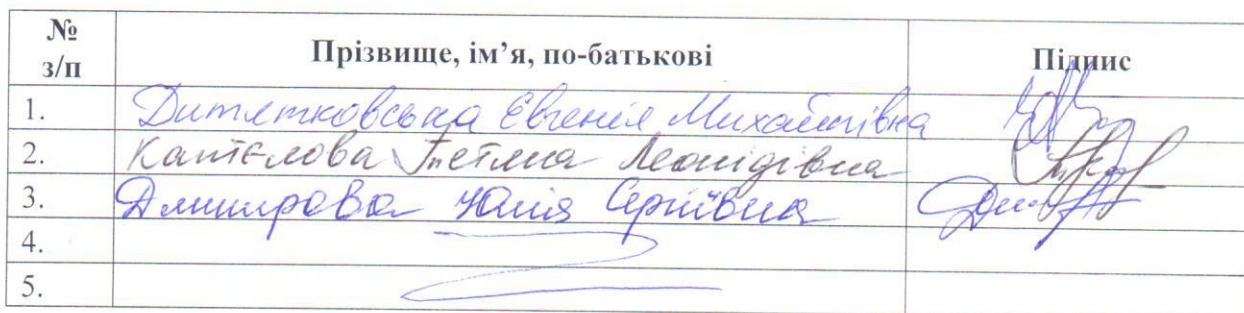 № з/п Прізвище, ім’я, по-батькові Підпис
1. Дитятковська Євгенія Михайлівна
2. Тетяна Леонідівна
3. Юлія Сергіївна
4.
5.